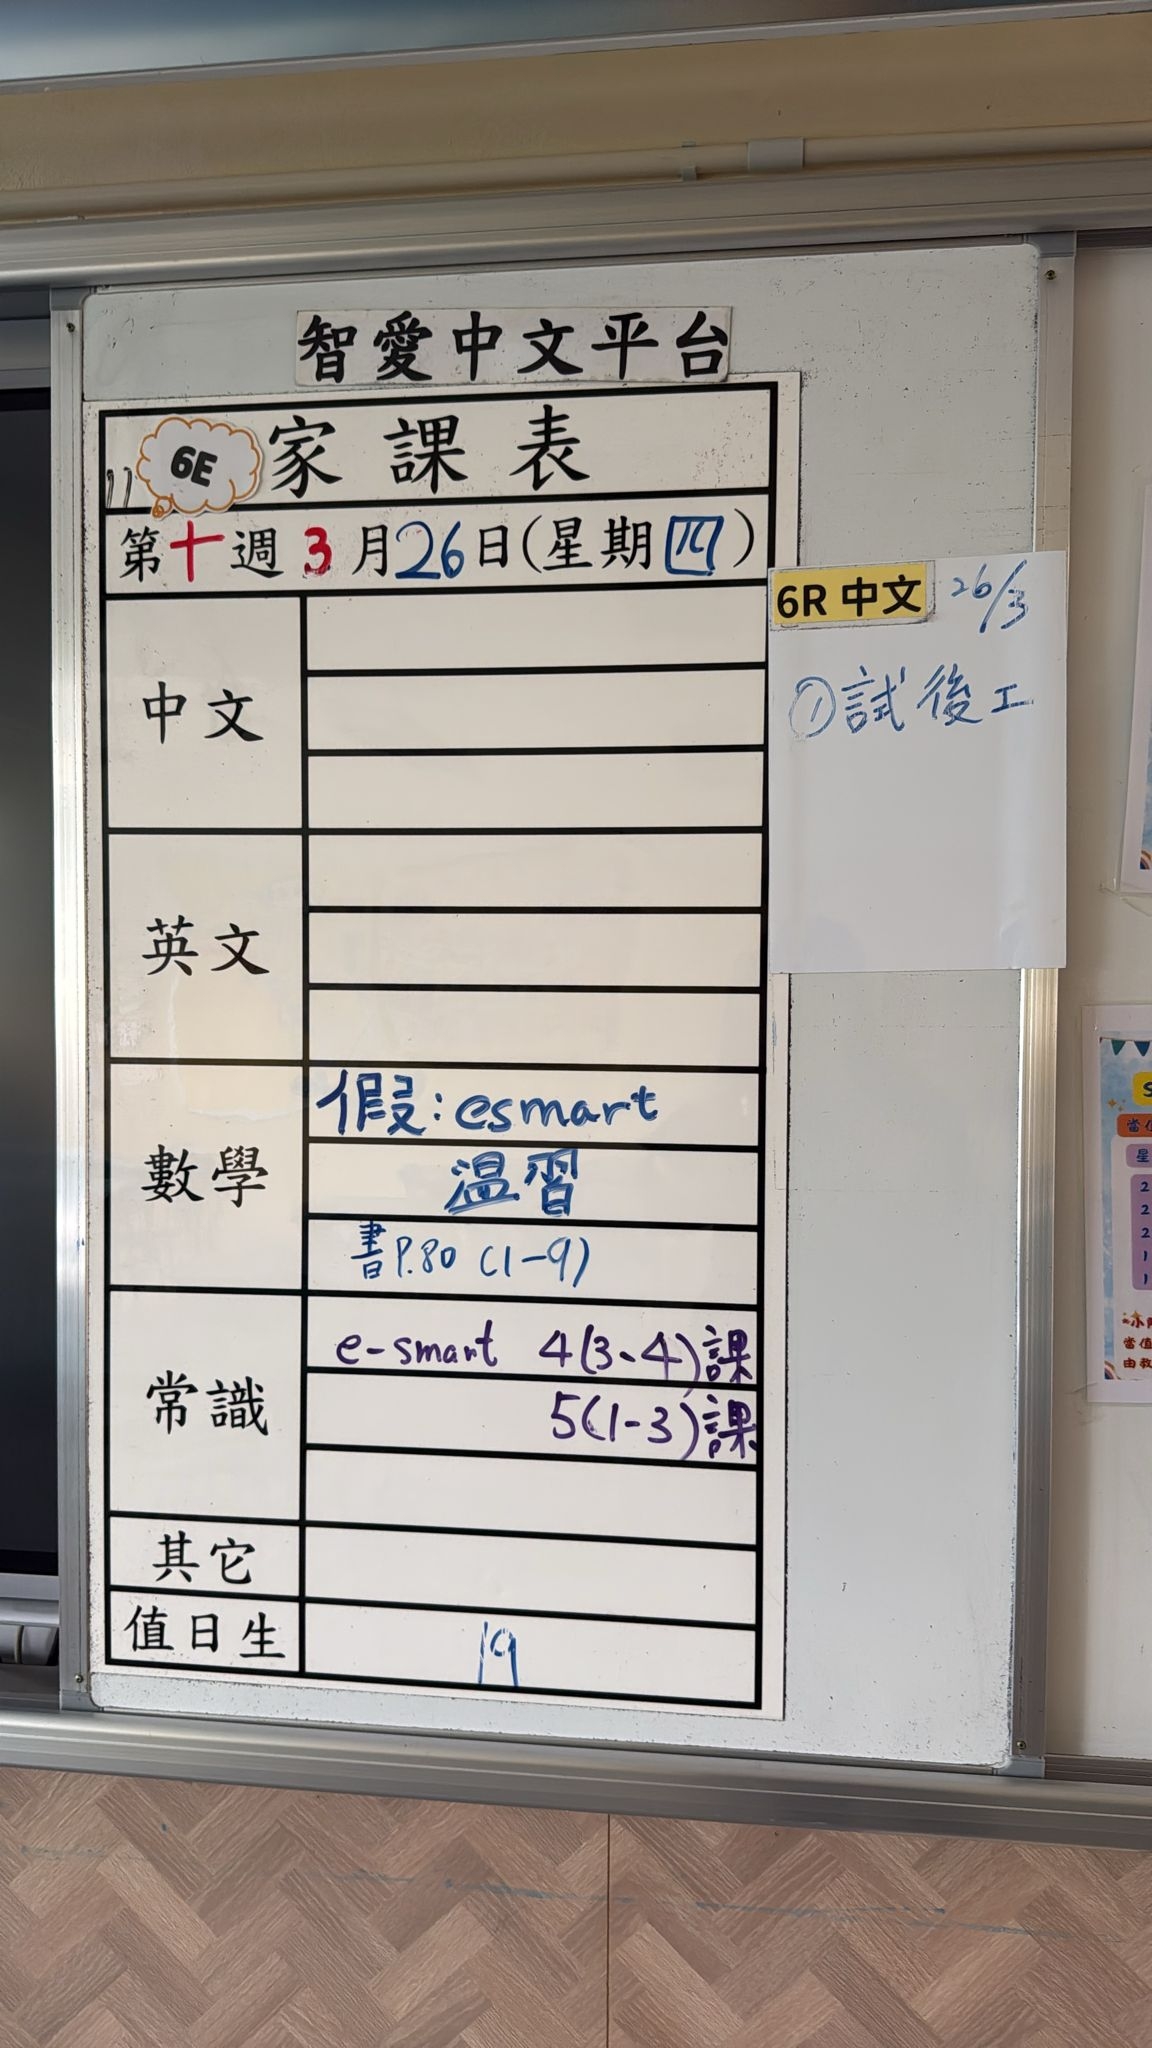 智愛中文平台
6E 家課表
第十週3月26日(星期四)
6R 中文 26/3
①試後工
中文
英文
數學
假：esmart
温習
書P.80 (1-9)
常識
e-smart 4(3、4)課
5(1-3)課
其它
值日生
19